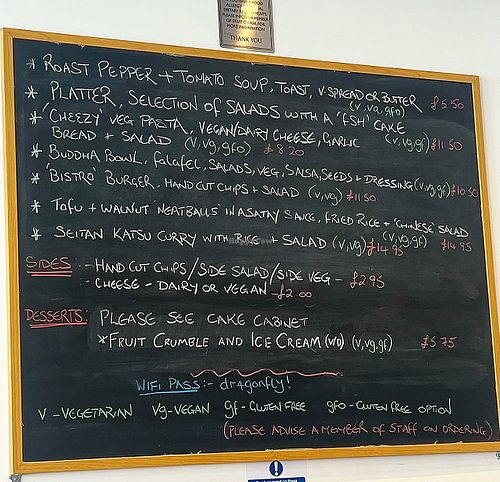 ALLERGIES
DIETARY
PLEASE
MEMBER
OF STAFF
FOR
MORE INFORMATION
THANK YOU
* ROAST PEPPER + TOMATO SOUP, TOAST, V.SPREAD OR BUTTER £5.50
(v, vg, gfo)
* PLATTER, SELECTION OF SALADS WITH A 'FSH' CAKE
(v, vg, gf) £11.50
* 'CHEEZY' VEG PASTA, VEGAN/DAIRY CHEESE, GARLIC
BREAD + SALAD (v, vg, gfo) £8.20
* BUDDHA BOWL, FALAFEL, SALADS, VEG, SALSA, SEEDS + DRESSING (v, vg, gf) £10.50
* 'BISTRO' BURGER, HAND CUT CHIPS + SALAD (v, vg) £11.50
* TOFU + WALNUT 'NEATBALLS' IN A SATAY SAUCE, FRIED RICE + 'CHINESE' SALAD
(v, vg, gf) £14.95
* SEITAN KATSU CURRY WITH RICE + SALAD (v, vg) £14.95
SIDES :- HAND CUT CHIPS/SIDE SALAD/SIDE VEG - £2.95
:- CHEESE - DAIRY OR VEGAN - £2.00
DESSERTS: PLEASE SEE CAKE CABINET
* FRUIT CRUMBLE AND ICE CREAM (v, vg, gf) £5.75
WIFI PASS:- dr4gonfly!
V - VEGETARIAN Vg - VEGAN gf - GLUTEN FREE gfo - GLUTEN FREE OPTION
(PLEASE ADVISE A MEMBER OF STAFF ON ORDERING)